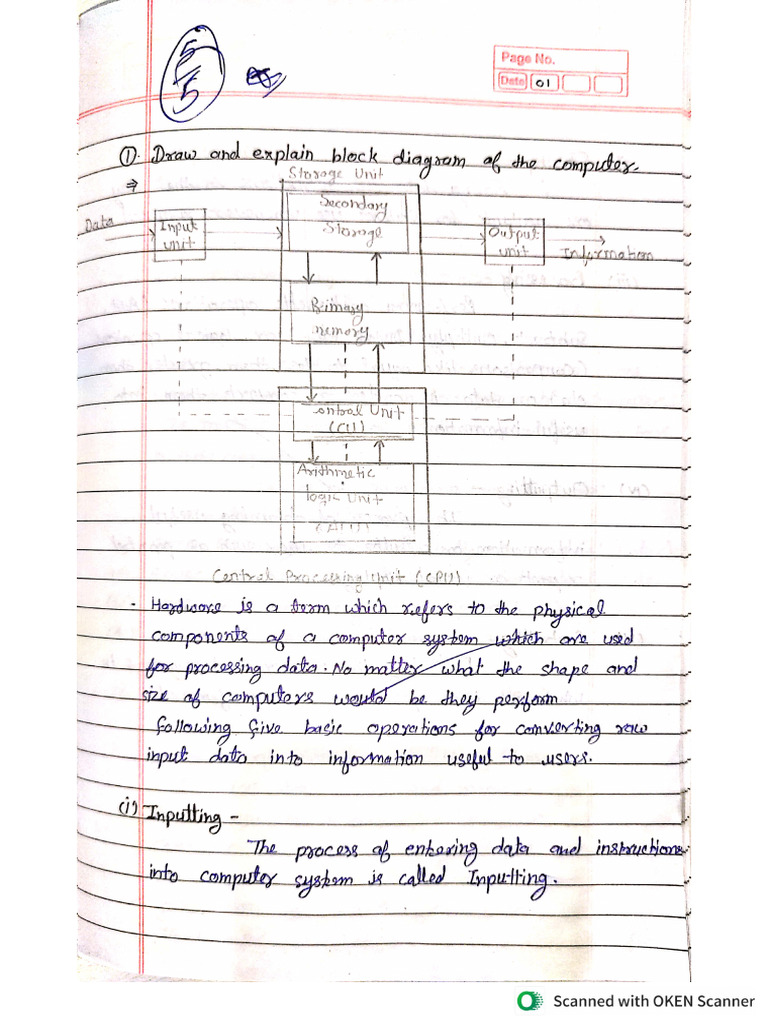 5
5
Page No.
Date 01
① Draw and explain block diagram of the computer.
⇒
Storage Unit
Data
Input
unit
Secondary
Storage
Output
unit
Information
Primary
memory
ontrol Unit
(CU)
Arithmetic
logic Unit
(ALU)
Central Processing Unit (CPU)
. Hardware is a term which refers to the physical
components of a computer system which are used
for processing data. No matter what the shape and
size of computers would be they perform
following five basic operations for converting raw
input data into information useful to users.
(i) Inputting -
The process of entering data and instructions
into computer system is called Inputting.
Scanned with OKEN Scanner